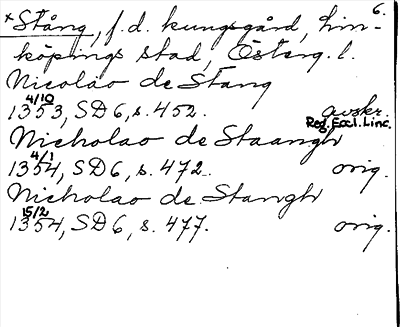 6.
× Stång, f.d. kungsgård, Lin-
köpings stad, Österg. l.
Nicolao de Stang
1353 4/10, SD 6, s. 452. avskr. Reg. Eccl. Linc.
Nicholao de Staangh
1354 4/1, SD 6, s. 472. orig.
Nicholao de Stangh
1354 15/2, SD 6, s. 477. orig.